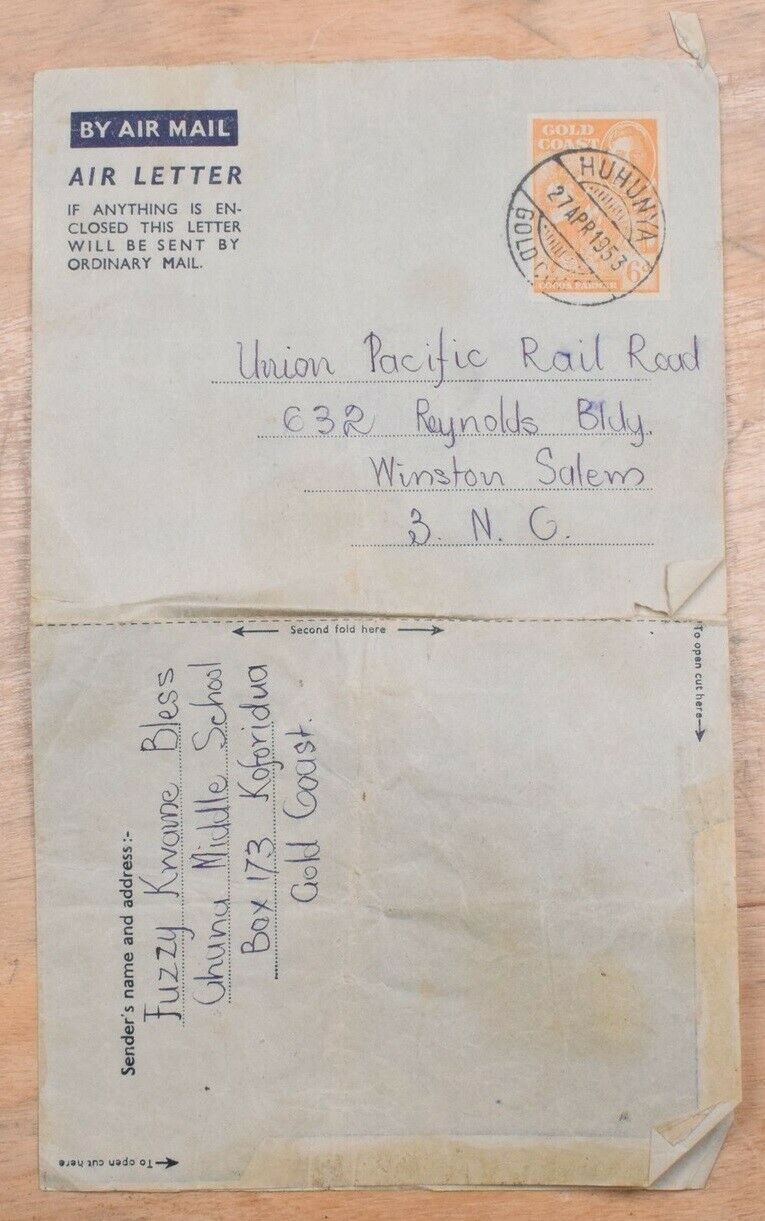 BY AIR MAIL
AIR LETTER
IF ANYTHING IS EN-
CLOSED THIS LETTER
WILL BE SENT BY
ORDINARY MAIL.
GOLD
COAST
6
COCOA FARMER
HUHUNYA
27 APR 1953
GOLD
Union Pacific Rail Road
632 Reynolds Bldy.
Winston Salem
3. N. C.
Second fold here
To open cut here
Sender's name and address :-
Fuzzy Kwame Bless
Ghunu Middle School
Box 173 Koforidua
Gold Coast.
To open cut here